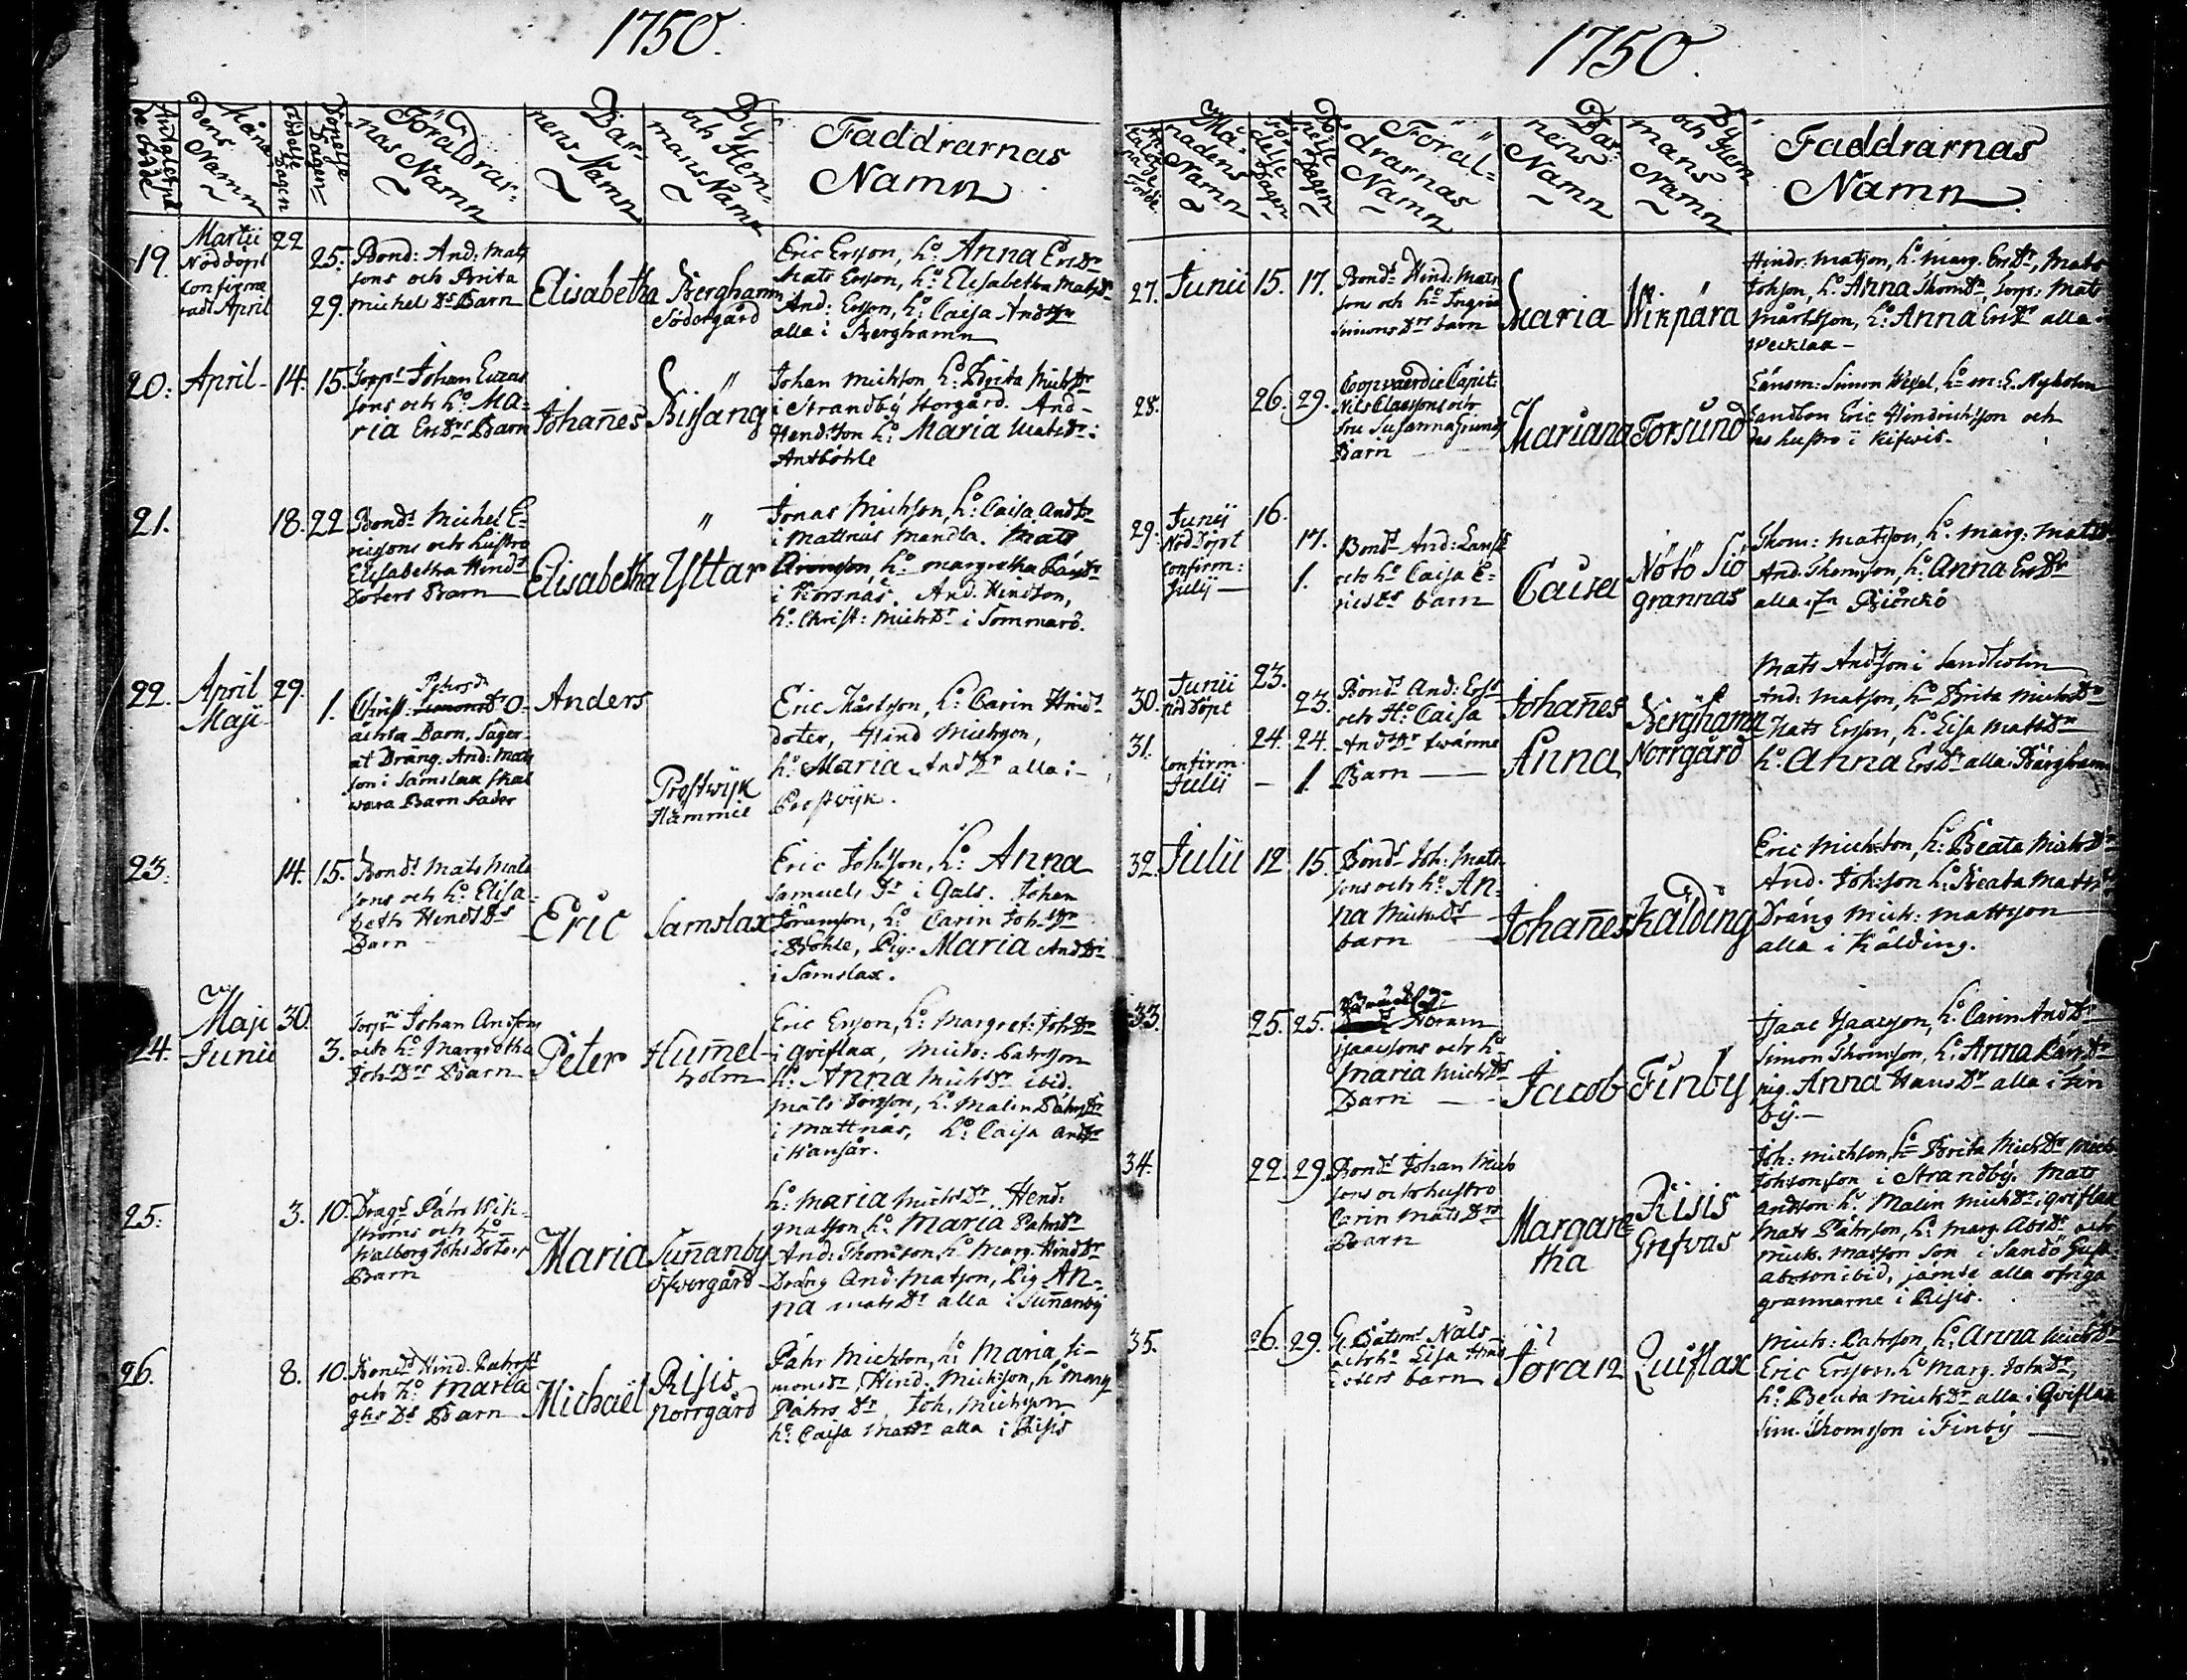 1750.
Månadens Namn
Födelse Dagen
Döpelse Dagen
Föräldrarnas Namn
Barnens Namn
By och Hemmans Namn
Faddrarnas
Namn
19.
Martii
Nöddöpt
confirme
radt April
22
25.
29.
Bond: And: Mats
sons och Brita
Michels Dr Barn
Elisabetha
Berghamn
Södergård
Eric Ersson, ho: Anna ErsDr
Mats Ersson, ho: Elisabetha MatsDr
And: Ersson, ho: Caisa AndsDr
alla i Berghamn
20.
April
14.
15.
Johan
sons och ho: Ma=
ria ErsDrs Barn
Johañes
Bissäng
Johan Michson, ho: Brita MichsDr
i Strandbÿ Norgård. And
Hendsson ho: Maria MatsDr:
Antböhle
21.
18.
22
Bonds Michel E=
ricssons och hustro
Elisabetha Hinds
Doters Barn
Elisabetha
Yttar
Jonas Michson, ho: Caisa AndDr
i Mattnäs Mandla. Mats
ho: Margretha
i Korsnäs. And. Hindson,
ho: Christ: MichDr i Sommarö.
22.
April
Maji
29.
1.
Christ: O=
ächta Barn, Säger
at Dräng. And: Mats
son i Sämslax skal
wara Barn fader
Anders
Prostwijk
Hammie
Eric Mårtsson, ho: Carin Hinds
doter, Hind Michson,
ho: Maria AndDr alla i
Prostwijk.
23.
14.
15.
Bonds Mats Mats
sons och ho: Elisa=
beth HindsDrs
Barn
Eric
Samslax
Eric Johsson, ho: Anna
Samuels Dr i Gals. Johan
Jöranson, ho: Carin JohsDr
i Böhle, Pig: Maria AndDr
i Samslax.
24.
Maji
Junii
30.
3.
Torpns Johan Andsons
och ho: Margretha
JohsDrs Barn
Peter
Hum̃el=
holm
Eric Ersson, ho: Margret: JohDr
i Qviflax, Mich: Pahrsson
ho: Anna MichDr ibid.
Mats ho: Malin PährsDr
i Mattnäs, ho: Caisa AndDr
i Känsår.
25.
3.
10.
Drags Pähr Wik=
ströms och ho
Walborg Johs Doters
Barn
Maria
Suñanby
öfwergård
ho: Maria MichsDr. Hend:
Matson ho: Maria PahrsDr
And: Thomsson, ho: Marg. HindDr
Dräng And: Matson, Pig An=
na MatsDr alla i Suñanby
26.
8.
10.
Bonds Hind. Pahrss
och ho: Maria
Drs Barn
Michaël
Risis
Norrgård
Pähr Michson, ho: Maria Si=
monsDr, Hind. Michson, ho Marg
Pährs Dr Joh. Michson
ho: Caisa MatsDr alla i Risis
1750.
Månadens Namn
Födelse Dagen
Döpelse Dagen
Föräldrarnas Namn
Barnens Namn
By och Hemmans Namn
Faddrarnas
Namn
27.
Junii
15.
17.
Bonds Hind: Mats
son och ho Ingrid
SimonsDrs barn
Maria
Wikpära
Hindr: Matson, ho: Marg. ErsDr, Mats
Johson, ho: Anna ThomDr, Torp: Mats
Mårtsson, ho: Anna ErsDr alla i
28.
26.
29.
Coopvaerdie Capit:
Nils Claessons och
fru Susanna
Barn
Mariana
Torsund
Länsm: Simon ho M: E. Nyholm
Landbon Eric Hindrichsson och
des hustro i
29.
Junij
Nöd Döpt
confirm:
Julij
16.
17.
1.
Bonds And:
och ho Caisa E=
ricsDrs barn
Caisa
Nötö Siö
grannas
Thom: Matsson, ho. Marg: Mats
And. Thomson, ho: Anna ErsDr
alla ifn Biörckö
30.
31.
Junii
nöd Döpt
confirm.
Julij
23.
24.
23.
24.
1.
Bonds And: Erss
och Ho: Caisa
AndDr twänne
Barn
Johañes
Anna
Berghamn
Norrgård
Mats Andsson i Landholm
And: Matson, ho: Brita MichsDr
Mats Ersson, ho: Lisa MatsDr
ho: Anna ErsDr alla i Bärghamn
32.
Julii
12.
15.
Bonds Joh: Mats
sons och ho: An=
na MichsDrs
barn
Johañes
Kälding
Eric Michson, ho: Beata MichsDr
And. Johsson ho: Beata Mats
Dräng Mich: Mattsson
alla i Kälding.
33.
25.
25.
Abram
Isaacssons och ho
Maria MichsDrs
Barn
Jacob
Finby
Isaac Isaacson, ho. Carin AndDr
Simon Thomson, ho: Anna
pig. Anna HansDr alla i Fin
bÿ.
34.
22.
29.
Bonds Johan Mich
sons och hustro
Carin Mats Drs
Barn
Margare=
tha
Risis
Grefvas
Joh: Michson, ho Brita MichDr Mich
Johsonson i Strandbÿ. Mats
Andson ho. Malin MichDr i Qviflax
Mats Pährson, ho: Marg. AbsDr och
Mich. Matson Son i Sandö Gust
Abrson ibid, jämte alla öfriga
grannarne i Risis.
35.
26.
29.
Båtsms Nåls
och ho Lisa Hind
doters barn
Jöran
Quiflax
Mich: Pahrsson, ho: Anna MichDr
Eric Ersson, ho Marg. JohsDr,
ho: Beata MichsDr alla i Qviflax
Sim. Thomsson i Finbÿ